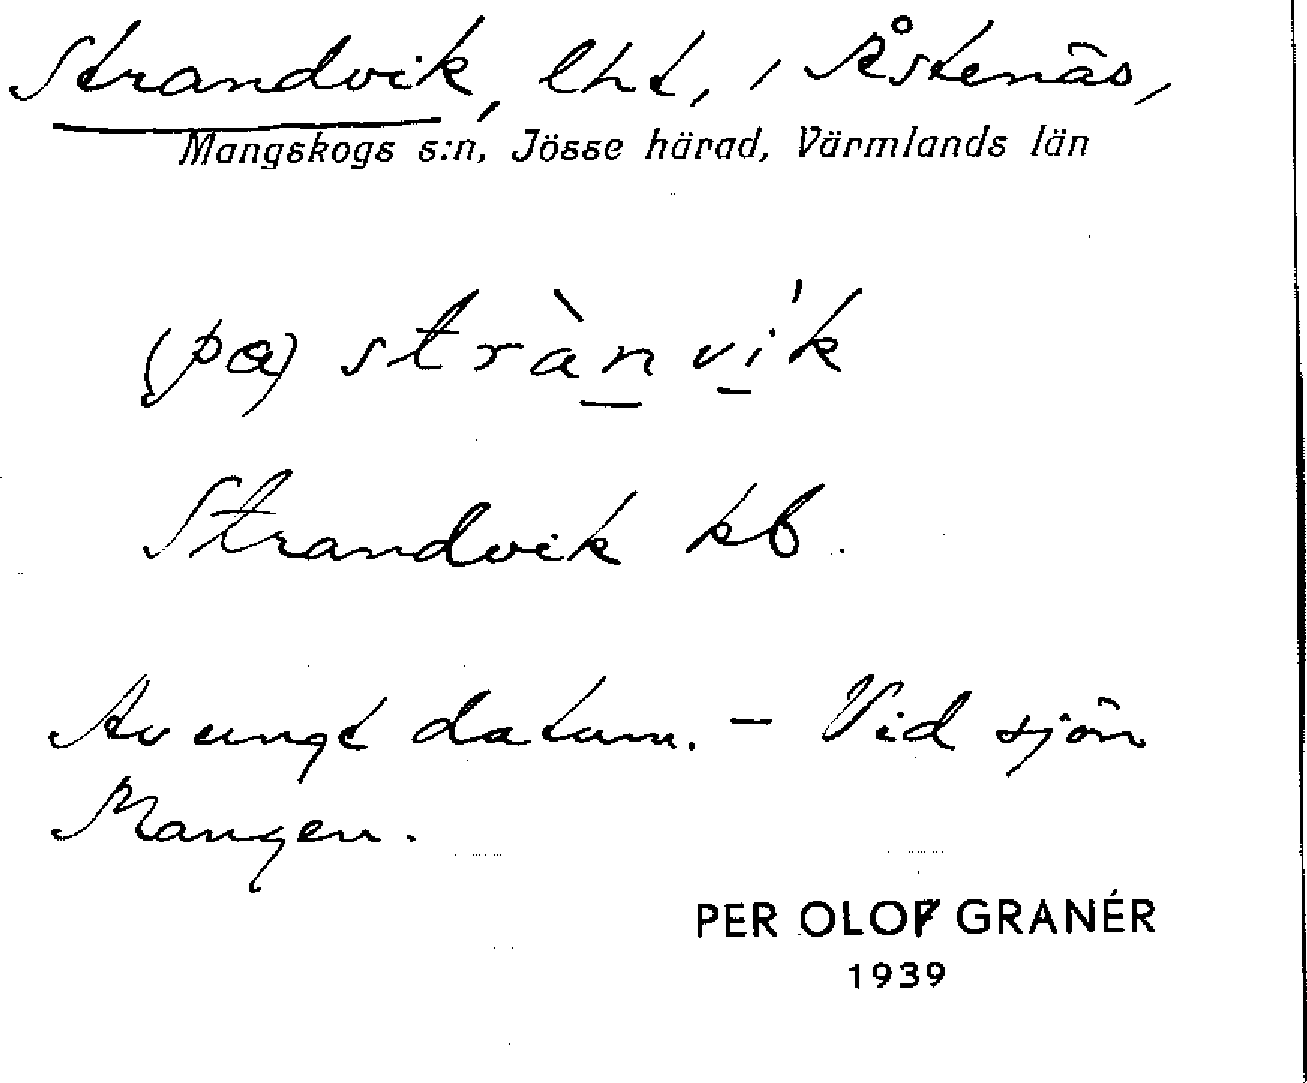 Strandvik, lht, i Åstenäs,
Mangskogs s:n, Jösse härad, Värmlands län
(pa) strànvi'k
Strandvik kb.
Av ungt datum. – Vid sjön
Mangen.
PER OLOF GRANÉR
1939